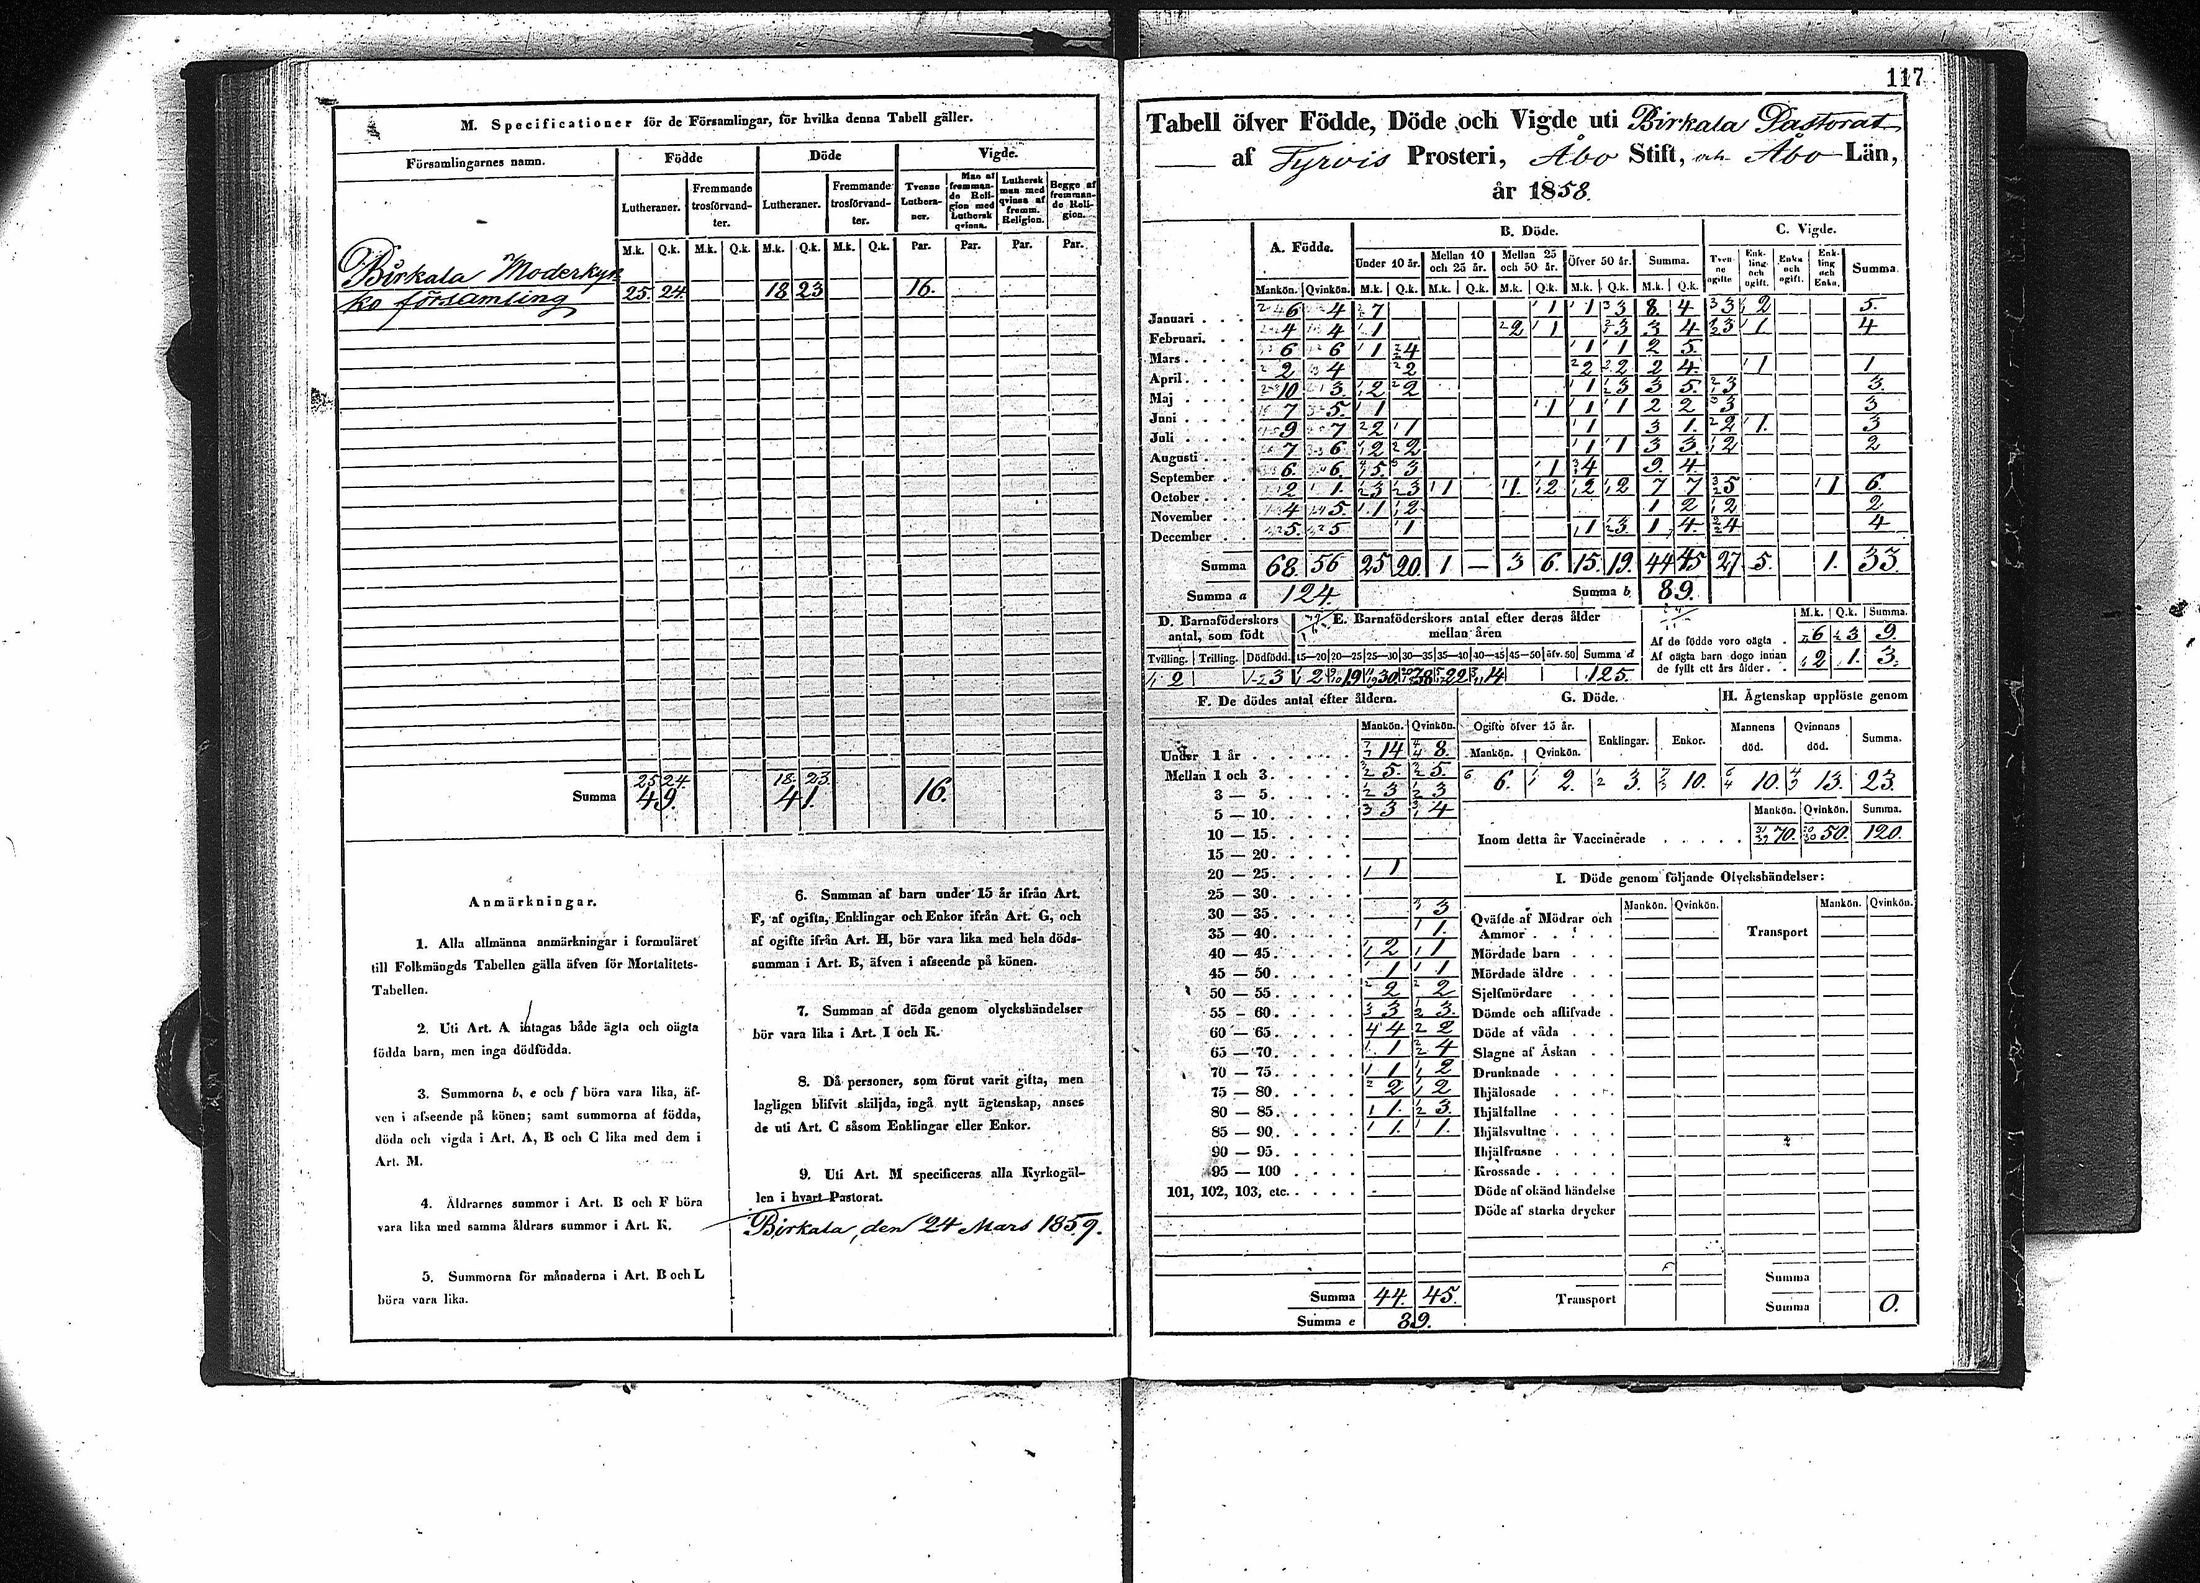 M. Specificationer för de Församlingar, för hvilka denna Tabell gäller.
Församlingarnes namn. Födde Döde Vigde.
Lutheraner. Fremmande trosförvandter. Lutheraner. Fremmande trosförvandter. Tvenne Lutheraner. Man af fremmande Religion med Luthersk qvinna. Luthersk man med qvinna af fremm. Religion. Begge af fremmande Religion.
M.k. Q.k. M.k. Q.k. M.k. Q.k. M.k. Q.k. Par. Par. Par. Par.
Birkala Moderkyr
ko församling 25. 24. 18 23 16.
25 24. 18. 23.
Summa 49. 41. 16.
Anmärkningar.
1. Alla allmänna anmärkningar i formuläret
till Folkmängds Tabellen gälla äfven för Mortalitets-
Tabellen.
2. Uti Art. A intagas både ägta och oägta
födda barn, men inga dödfödda.
3. Summorna b, e och f böra vara lika, äf-
ven i afseende på könen; samt summorna af födda,
döda och vigda i Art. A, B och C lika med dem i
Art. M.
4. Åldrarnes summor i Art. B och F böra
vara lika med samma åldrars summor i Art. K.
5. Summorna för månaderna i Art. B och L
böra vara lika.
6. Summan af barn under 15 år ifrån Art.
F, af ogifta, Enklingar och Enkor ifrån Art. G, och
af ogifte ifrån Art. H, bör vara lika med hela döds-
summan i Art. B, äfven i afseende på könen.
7. Summan af döda genom olyckshändelser
bör vara lika i Art. I och K.
8. Då personer, som förut varit gifta, men
lagligen blifvit skiljda, ingå nytt ägtenskap, anses
de uti Art. C såsom Enklingar eller Enkor.
9. Uti Art. M specificeras alla Kyrkogäl-
len i hvart Pastorat.
Birkala, den 24 Mars 1859.
117
Tabell öfver Födde, Döde och Vigde uti Birkala Pastorat
af Tyrvis Prosteri, Åbo Stift, och Åbo Län,
år 1858.
A. Födde. B. Döde. C. Vigde.
Under 10 år. Mellan 10 och 25 år. Mellan 25 och 50 år. Öfver 50 år. Summa. Tvenne ogifte Enkling och ogift. Enka och ogift. Enkling och Enka. Summa.
Mankön. Qvinkön. M.k. Q.k. M.k. Q.k. M.k. Q.k. M.k. Q.k. M.k. Q.k.
Januari . . . 6 4 7 1 1 3 8 4 3 2 5.
Februari. . . 4 4 1 2 1 3 3 4 3 1 4
Mars . . . . 6 6 1 4 1 1 2 5.
April . . . . 2 4 2 2 2 2 4. 1 1
Maj . . . . 10 3. 2 2 1 3 3 5. 3 3.
Juni . . . . 7 5. 1 1 1 1 2 2 3 3
Juli . . . . 9 7 2 1 1 3 1. 2 1. 3
Augusti . . . 7 6 2 2 1 1 3 3 2 2
September . . 6 6 5 3 1 4 9. 4.
October . . . 2 1. 3 3 1 1 2 2 2 7 7 5 1 6.
November . . 4 5. 1 2 1 2 2 2
December . . 5. 5 1 1 3 1 4 4 4
Summa 68. 56 25 20. 1 — 3 6. 15. 19. 44 45 27 5. 1. 33.
Summa a 124. Summa b 89.
D. Barnaföderskors antal, som födt E. Barnaföderskors antal efter deras ålder mellan åren M.k. Q.k. Summa.
Af de födde voro oägta . 6 3 9.
Tvilling. Trilling. Dödfödd. 15—20 20—25 25—30 30—35 35—40 40—45 45—50 öfv. 50 Summa d Af oägta barn dogo innan de fyllt ett års ålder . . 2 1. 3.
2 3 2 19 30 38 22 14 125.
F. De dödes antal efter åldern. G. Döde. H. Ägtenskap upplöste genom
Mankön. Qvinkön. Ogifte öfver 15 år. Enklingar. Enkor. Mannens död. Qvinnans död. Summa.
Mankön. Qvinkön.
Under 1 år . . . . . . 14 8.
Mellan 1 och 3. . . . . 5. 5. 6. 2. 3. 10. 10. 13. 23.
3 — 5. . . . . 3 3
5 — 10. . . . . 3 4 Mankön. Qvinkön. Summa.
10 — 15. . . . . Inom detta år Vaccinerade . . . . . 70. 50. 120.
15 — 20. . . . .
20 — 25. . . . . 1 I. Döde genom följande Olyckshändelser:
25 — 30. . . . . Mankön. Qvinkön. Mankön. Qvinkön.
30 — 35. . . . . 3 Qväfde af Mödrar och
35 — 40. . . . . 1. Ammor . . . . . Transport
40 — 45. . . . . 2 1 Mördade barn . . .
45 — 50. . . . . 1 1 Mördade äldre . . .
50 — 55. . . . . 2 2 Sjelfmördare . . .
55 — 60. . . . . 3 3. Dömde och aflifvade .
60 — 65. . . . . 4 2 Döde af våda . . .
65 — 70. . . . . 1 4 Slagne af Åskan . .
70 — 75. . . . . 1 2 Drunknade . . . .
75 — 80. . . . . 2 2 Ihjälosade . . . .
80 — 85. . . . . 1. 3. Ihjälfallne . . . .
85 — 90. . . . . 1. 1. Ihjälsvultne . . . .
90 — 95. . . . . Ihjälfrusne . . . .
95 — 100 . . . . Krossade . . . . .
101, 102, 103, etc. . . . . Döde af okänd händelse
Döde af starka drycker
Summa
Summa 44. 45. Transport Summa 0.
Summa e 89.